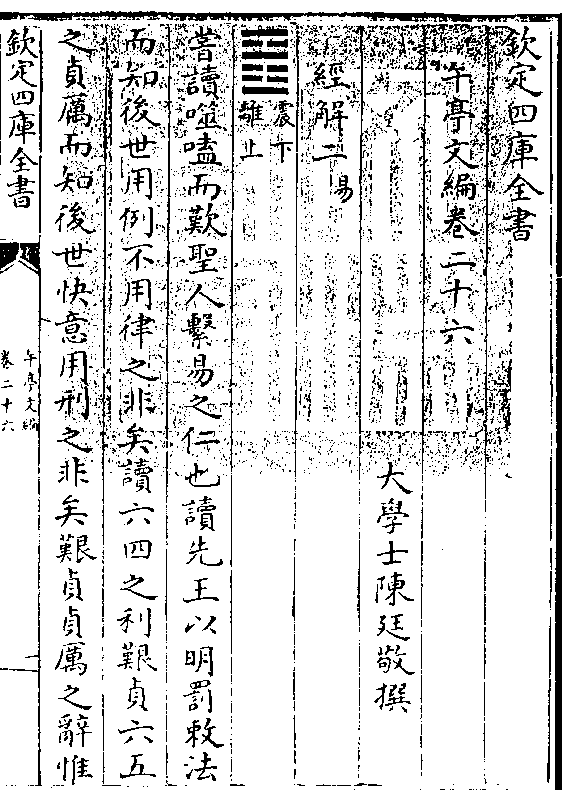 欽定四庫全書
午亭文編卷二十六
大學士陳廷敬撰
經解二易
震下
離上
嘗讀噬嗑而歎聖人繫易之仁也讀先王以明罰敕法
而知後世用例不用律之非矣讀六四之利艱貞六五
之貞厲而知後世快意用刑之非矣艱貞貞厲之辭惟
欽定四庫全書
午亭文編
卷二十六